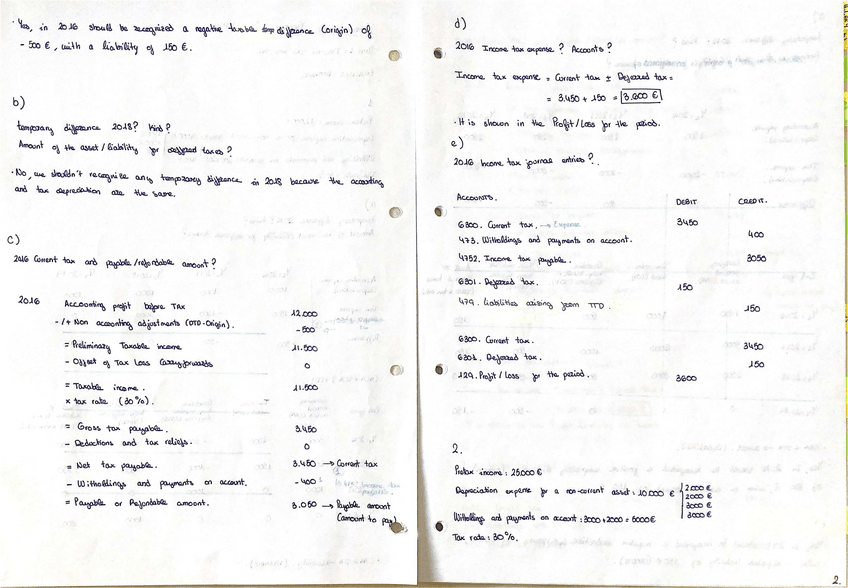 · Yes, in 2016 should be recognized a negative taxable difference (origin) of
- 500 €, with a liability of 150 €.
b)
temporary difference 2018? Kind?
Amount of the asset / liability for deffered taxes?
· No, we shouldn't recognize any temporary difference in 2018 because the accounting
and tax depreciation are the same.
c)
2016 Current tax and payable / refondable amount?
2016 Accounting profit before TAX 12.000
- /+ Non accounting adjustments (DTD-Origin). -500
= Preliminary Taxable income 11.500
- Offset of Tax Loss Carryforwards 0
= Taxable income. 11.500
x tax rate (30%).
= Gross tax payable. 3.450
- Deductions and tax reliefs. 0
= Net tax payable. 3.450 → Current tax
- Withholdings and payments on account. -400
= Payable or Refondable amount. 3.050 → Payable amount
(amount to pay)
d)
2016 Income tax expense? Accounts?
Income tax expense = Current tax ± Deferred tax =
= 3.450 + 150 = 3.600 €
· It is shown in the Profit / Loss for the period.
e)
2016 Income tax journal entries?
ACCOUNTS. DEBIT CREDIT.
6300. Current tax. → Expense 3450
473. Witholdings and payments on account. 400
4752. Income tax payable. 3050
6301. Deferred tax. 150
479. Liabilities arising from TTD. 150
6300. Current tax. 3450
6301. Deferred tax. 150
129. Profit / Loss for the period. 3600
2.
Pretax income: 25.000 €
Depreciation expense for a non-current asset: 10.000 € 2000 €
2000 €
3000 €
3000 €
Witholdings and payments on account: 3000 + 2000 = 5000 €
Tax rate: 30%.
2.